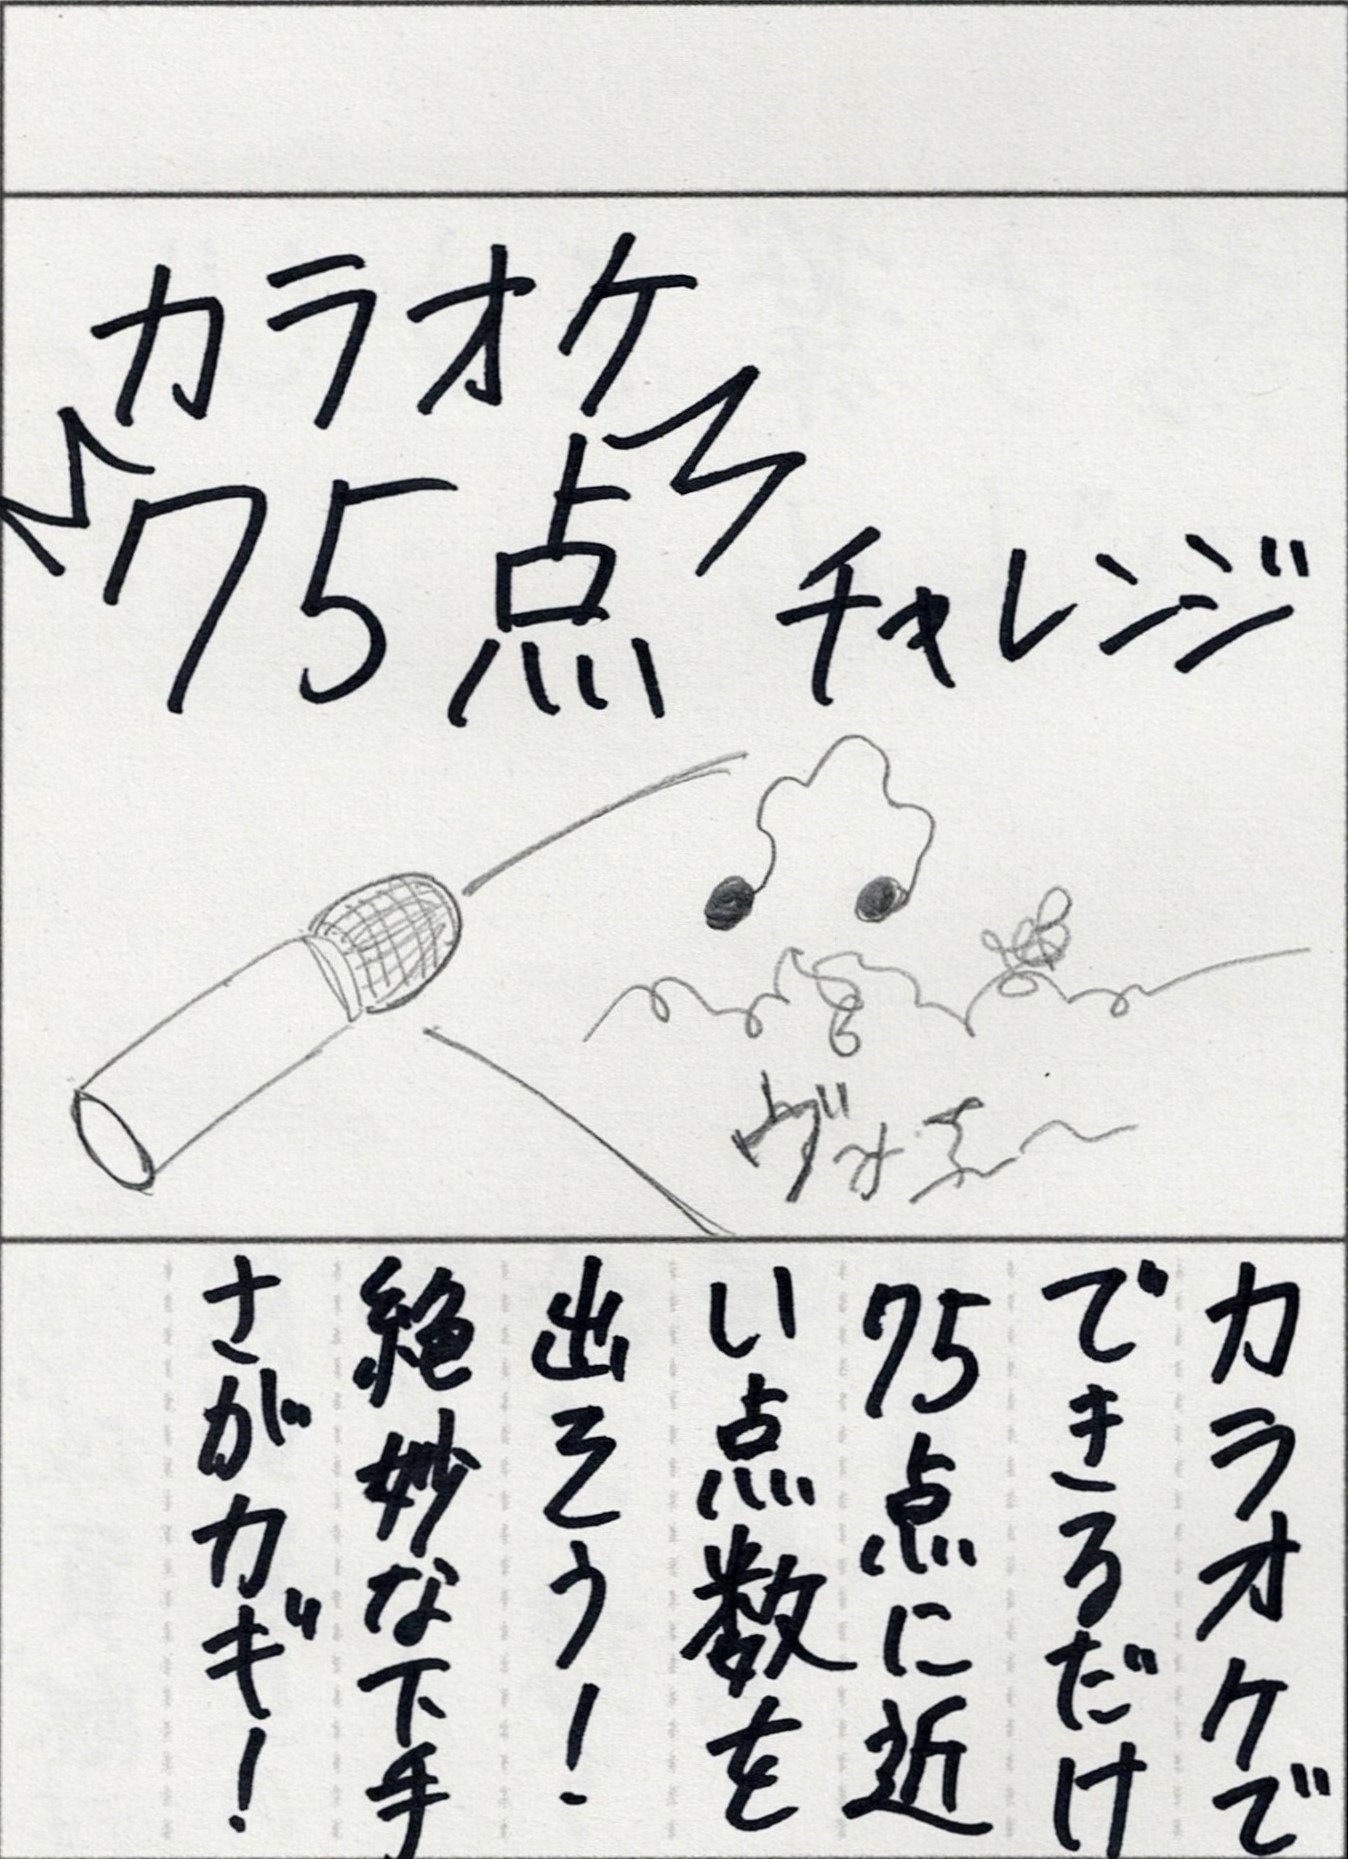 カラオケ
75点
チャレンジ
カラオケで
できるだけ
75点に近
い点数を
出そう！
絶妙な下手
さがカギ！